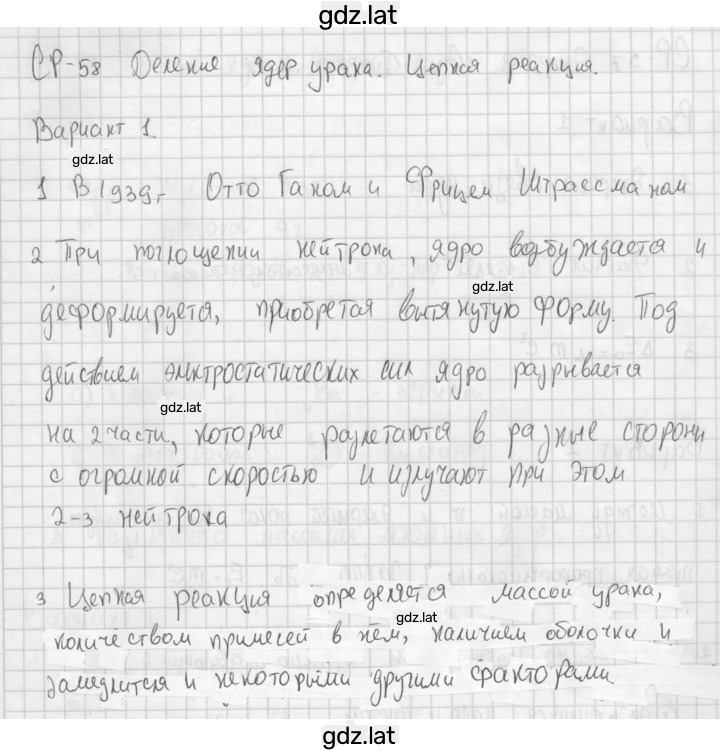 gdz.lat
СР-58 Деление ядер урана. Цепная реакция.
Вариант 1.
gdz.lat
1 В 1939г Отто Ганом и Фрицем Штрассманом
2 При поглощении нейтрона, ядро возбуждается и
gdz.lat
деформируется, приобретая вытянутую форму. Под
действием электростатических сил ядро разрывается
gdz.lat
на 2 части, которые разлетаются в разные стороны
с огромной скоростью и излучают при этом
2-3 нейтрона
3 Цепная реакция определяется массой урана,
gdz.lat
количеством примесей в нём, наличием оболочки и
замедлителя и некоторыми другими факторами.
gdz.lat